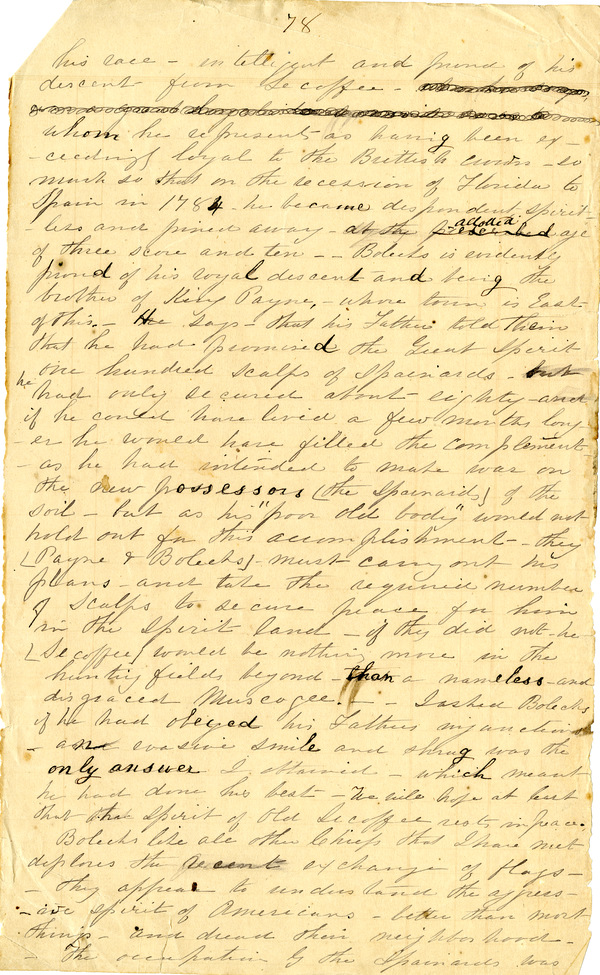 78
his race - intelligent and proud of his
descent from Secoffee -
whom he represents as having been ex-
-ceedingly loyal to the British crown - so
much so that on the recession of Florida to
Spain in 1784 he became despondent, spirit-
less and pined away - at the age
of three score and ten - - Bolecks is evidently
proud of his royal descent and being the
brother of King Payne, - whose town is East
of this. - He says - that his Father told them
that he had promised the Great Spirit
one hundred scalps of Spainards - but
he had only secured about eighty - and
if he coued have lived a few months long-
-er he would have filled the complement -
- as he had intended to make war on
the new possessors (the Spainards) of the
soil - but as his "poor old body" would not
hold out for this accomplishment - they
(Payne & Bolecks) - must carry out his
plans - and take the required number
of scalps to secure peace for him
in the Spirit land - if they did not - he
(Secoffee) would be nothing more in the
hunting fields beyond - than a nameless - and
disgraced Muscogee. - I asked Bolecks
if he had obeyed his Fathers injunctions
- an evasive smile and shrug was the
only answer I attained - which meant
he had done his best - We wile hope at least
that the spirit of Old Secoffee rests in peace.
Bolecks like ale other Chiefs that I have met
deplores the recent exchange of flags -
- they appear to understand the agress-
-ive spirit of Americans - better than most
things - and dread their neighborhood -
- The occupation by the Spainards was